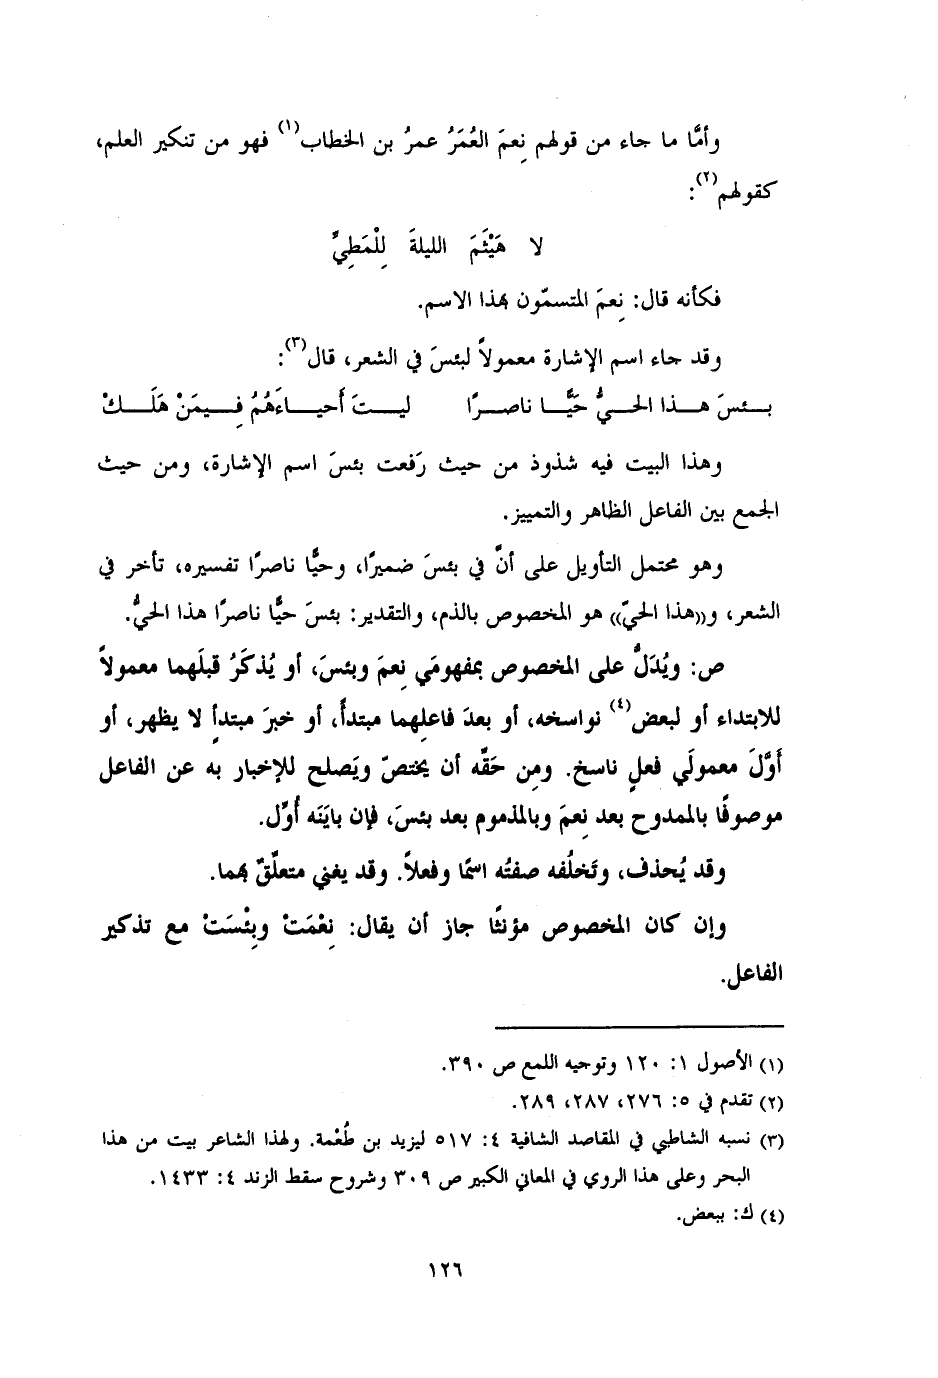 وأمَّا ما جاء من قولهم نِعمَ العُمَرُ عمرُ بن الخطاب(١) فهو من تنكير العلم،
كقولهم(٢):
لا هَيْثَمَ الليلةَ لِلْمَطِيِّ
فكأنه قال: نِعمَ المتسمّون بهذا الاسم.
وقد جاء اسم الإشارة معمولاً لبئسَ في الشعر، قال(٣):
بـئسَ هـذا الحـيُّ حَيًّـا ناصـرًا ليـتَ أَحيـاءَهُمُ فِـيمَنْ هَلَـكْ
وهذا البيت فيه شذوذ من حيث رَفعت بئسَ اسم الإشارة، ومن حيث
الجمع بين الفاعل الظاهر والتمييز.
وهو محتمل التأويل على أنَّ في بئسَ ضميرًا، وحيًّا ناصرًا تفسيره، تأخر في
الشعر، و((هذا الحيّ)) هو المخصوص بالذم، والتقدير: بئسَ حيًّا ناصرًا هذا الحيُّ.
ص: ويُدَلُّ على المخصوص بمفهومَي نِعمَ وبئسَ، أو يُذكَرُ قبلَهما معمولاً
للابتداء أو لبعض(٤) نواسخه، أو بعدَ فاعلِهما مبتدأً، أو خبرَ مبتدأٍ لا يظهر، أو
أَوَّلَ معمولَي فعلٍ ناسخ. ومِن حَقِّه أن يختصّ ويَصلح للإخبار به عن الفاعل
موصوفًا بالممدوح بعد نِعمَ وبالمذموم بعد بئسَ، فإن بايَنَه أُوِّل.
وقد يُحذف، وتَخلُفه صفتُه اسمًا وفعلاً. وقد يغني متعلِّقٌ بهما.
وإن كان المخصوص مؤنثًا جاز أن يقال: نِعْمَتْ وبِئْسَتْ مع تذكير
الفاعل.
(١) الأصول ١: ١٢٠ وتوجيه اللمع ص ٣٩٠.
(٢) تقدم في ٥: ٢٧٦، ٢٨٧، ٢٨٩.
(٣) نسبه الشاطبي في المقاصد الشافية ٤: ٥١٧ ليزيد بن طُعْمة. ولهذا الشاعر بيت من هذا
البحر وعلى هذا الروي في المعاني الكبير ص ٣٠٩ وشروح سقط الزند ٤: ١٤٣٣.
(٤) ك: ببعض.
١٢٦